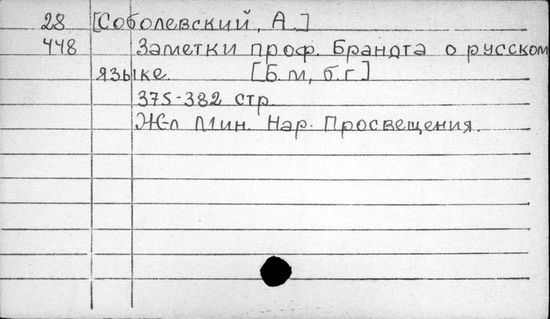 28 [Соболевский, А.]
448 Заметки проф. Брандта о русском
языке. [Б.м, б.г]
375-382 стр.
Ж-л Мин. Нар. Просвещения.